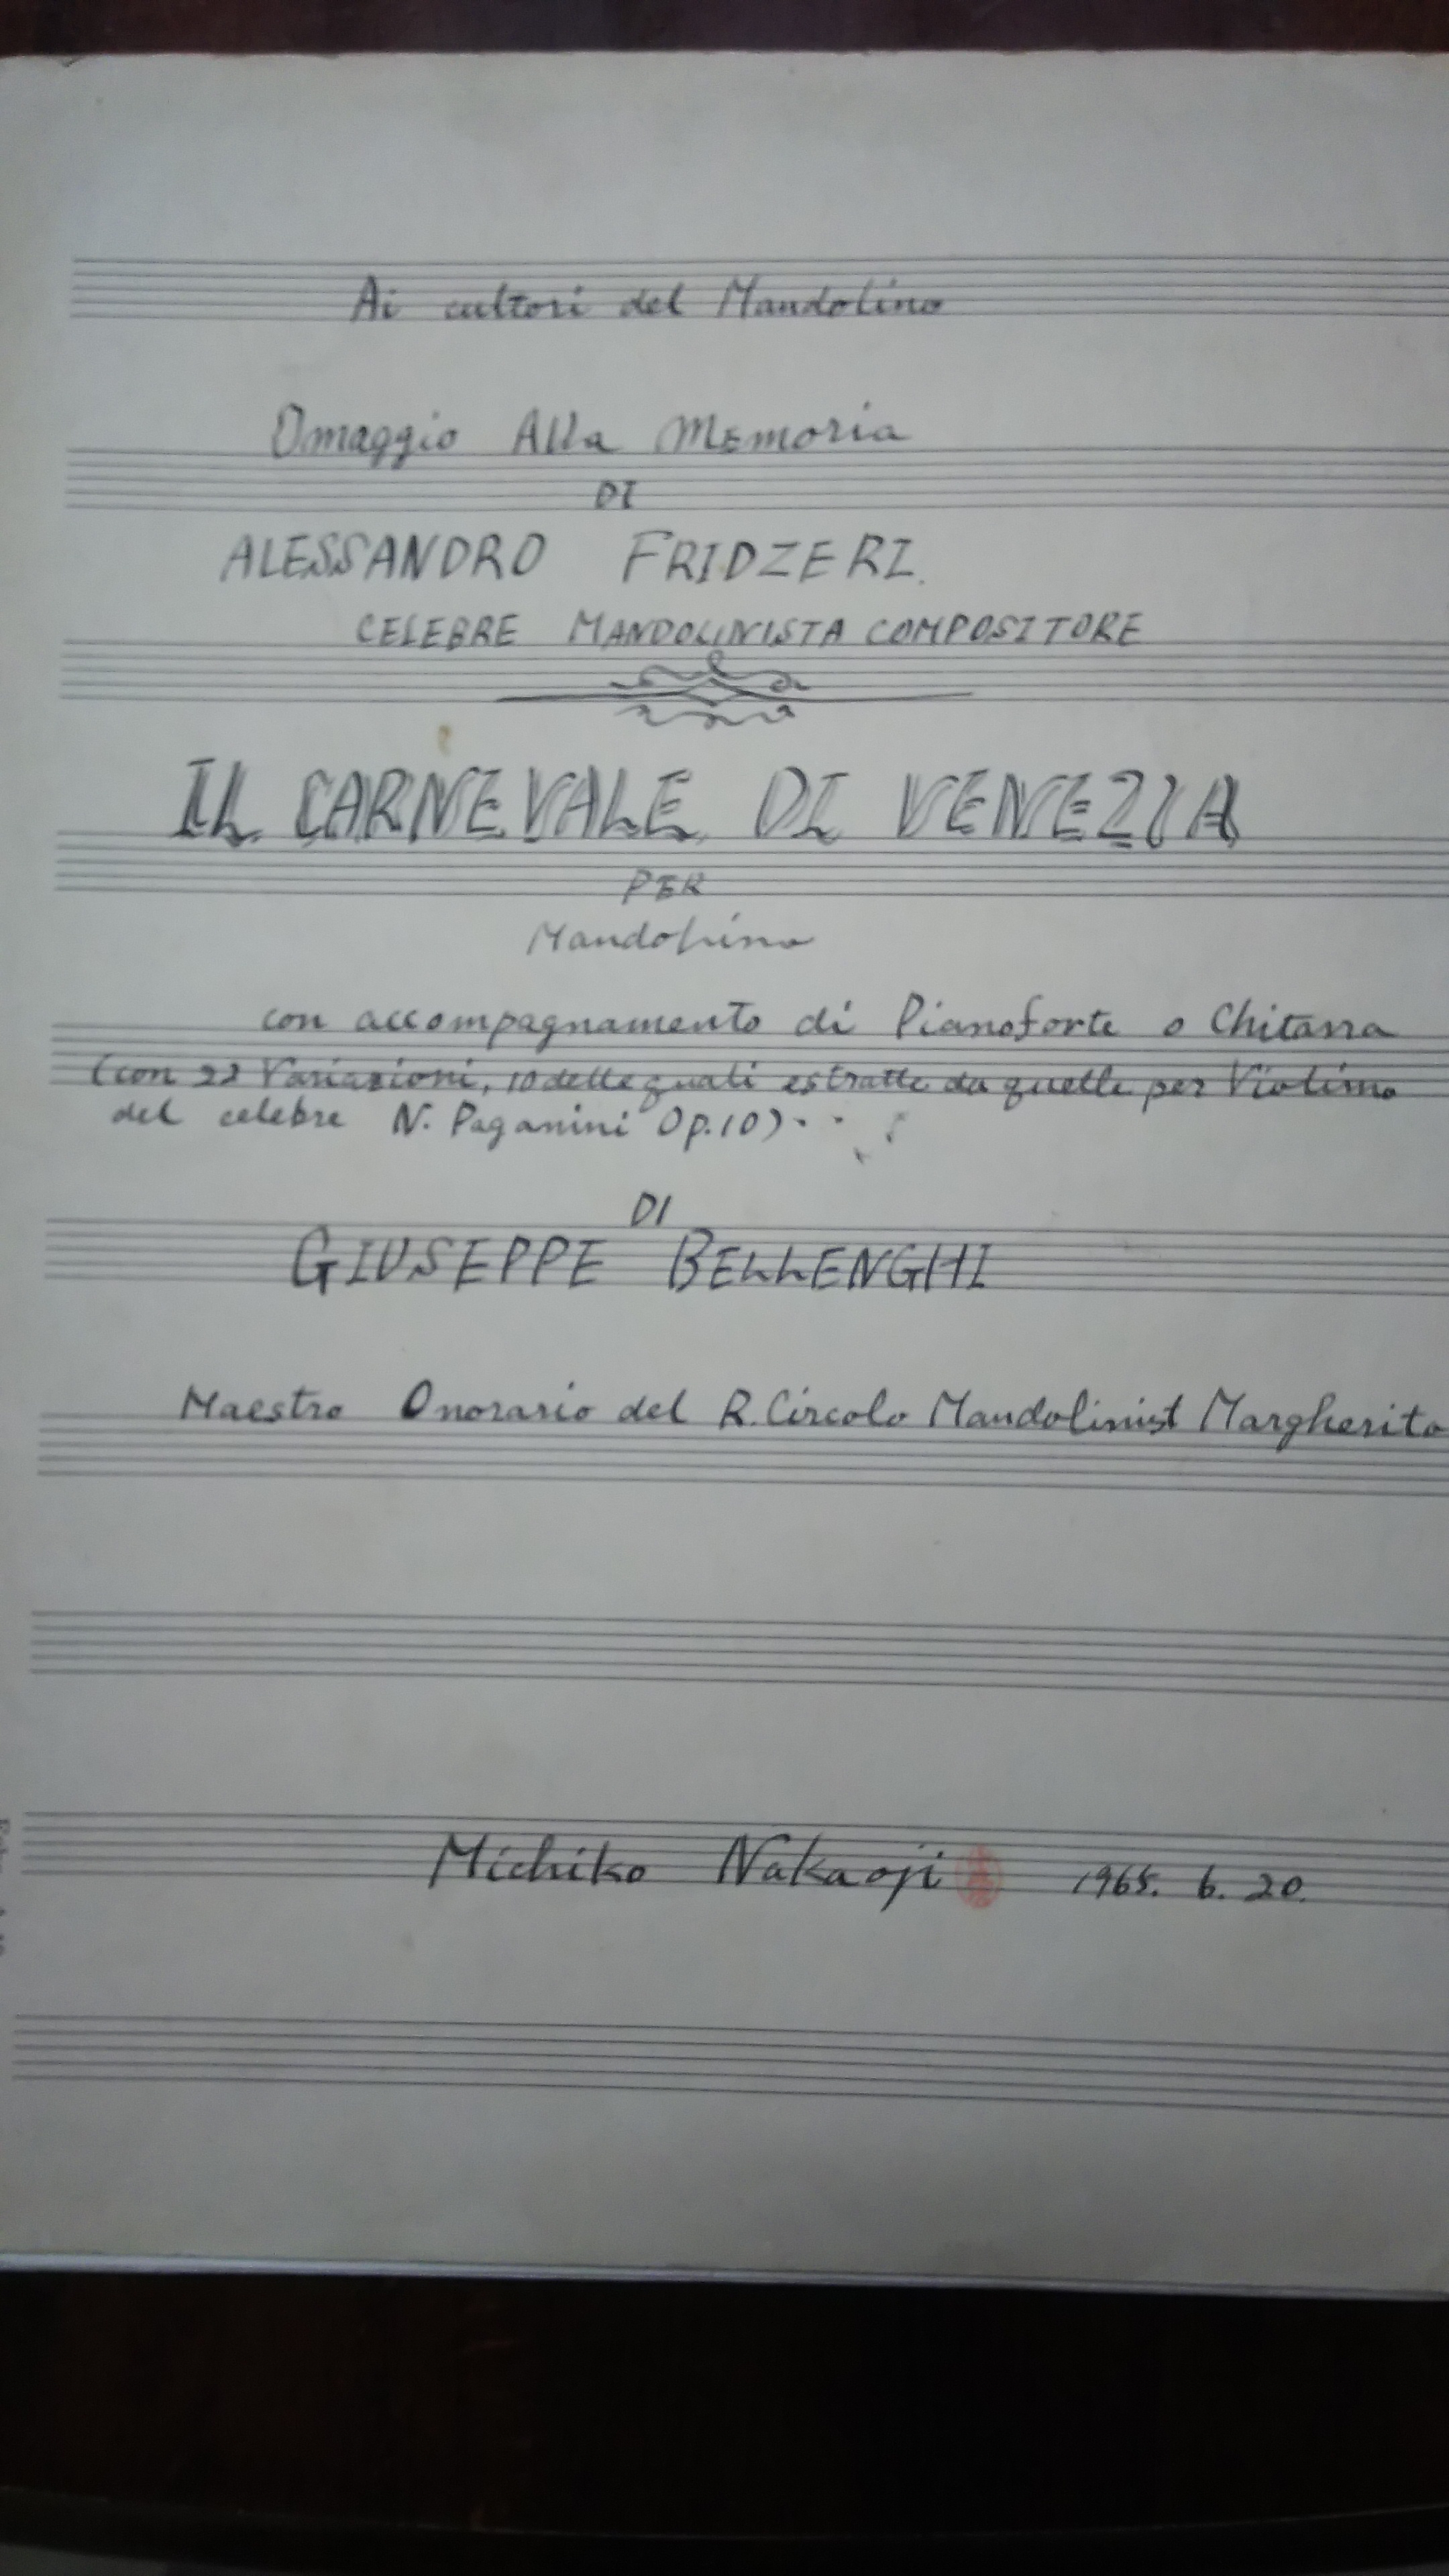 Ai cultori del Mandolino
Omaggio Alla Memoria
DI
ALESSANDRO FRIDZERI.
CELEBRE MANDOLINISTA COMPOSITORE
IL CARNEVALE DI VENEZIA
PER
Mandolino
con accompagnamento di Pianoforte o Chitarra
(con 22 Variazioni, 10 delle quali estratte da quelle per Violino
del celebre N. Paganini Op.10)
DI
GIUSEPPE BELLENGHI
Maestro Onorario del R. Circolo Mandolinist Margherita
Michiko Nakaoji 1965. 6. 20.